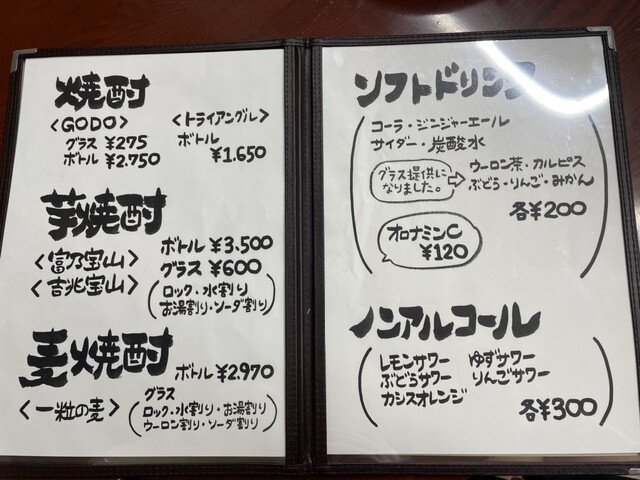 焼酎
〈GODO〉
グラス ¥275
ボトル ¥2.750
〈トライアングル〉
ボトル
¥1.650
芋焼酎
〈富乃宝山〉
〈吉兆宝山〉
ボトル ¥3.500
グラス ¥600
(ロック・水割り
お湯割り・ソーダ割り)
麦焼酎
〈一粒の麦〉
ボトル ¥2.970
グラス
(ロック・水割り・お湯割り
ウーロン割り・ソーダ割り)
ソフトドリンク
コーラ・ジンジャーエール
サイダー・炭酸水
グラス提供に
なりました。
⇨ ウーロン茶・カルピス
ぶどう・りんご・みかん
各¥200
オロナミンC
¥120
ノンアルコール
レモンサワー ゆずサワー
ぶどうサワー りんごサワー
カシスオレンジ
各¥300